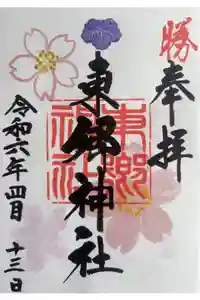 勝
奉拝
東郷神社
東郷神社
令和六年四月
十三日